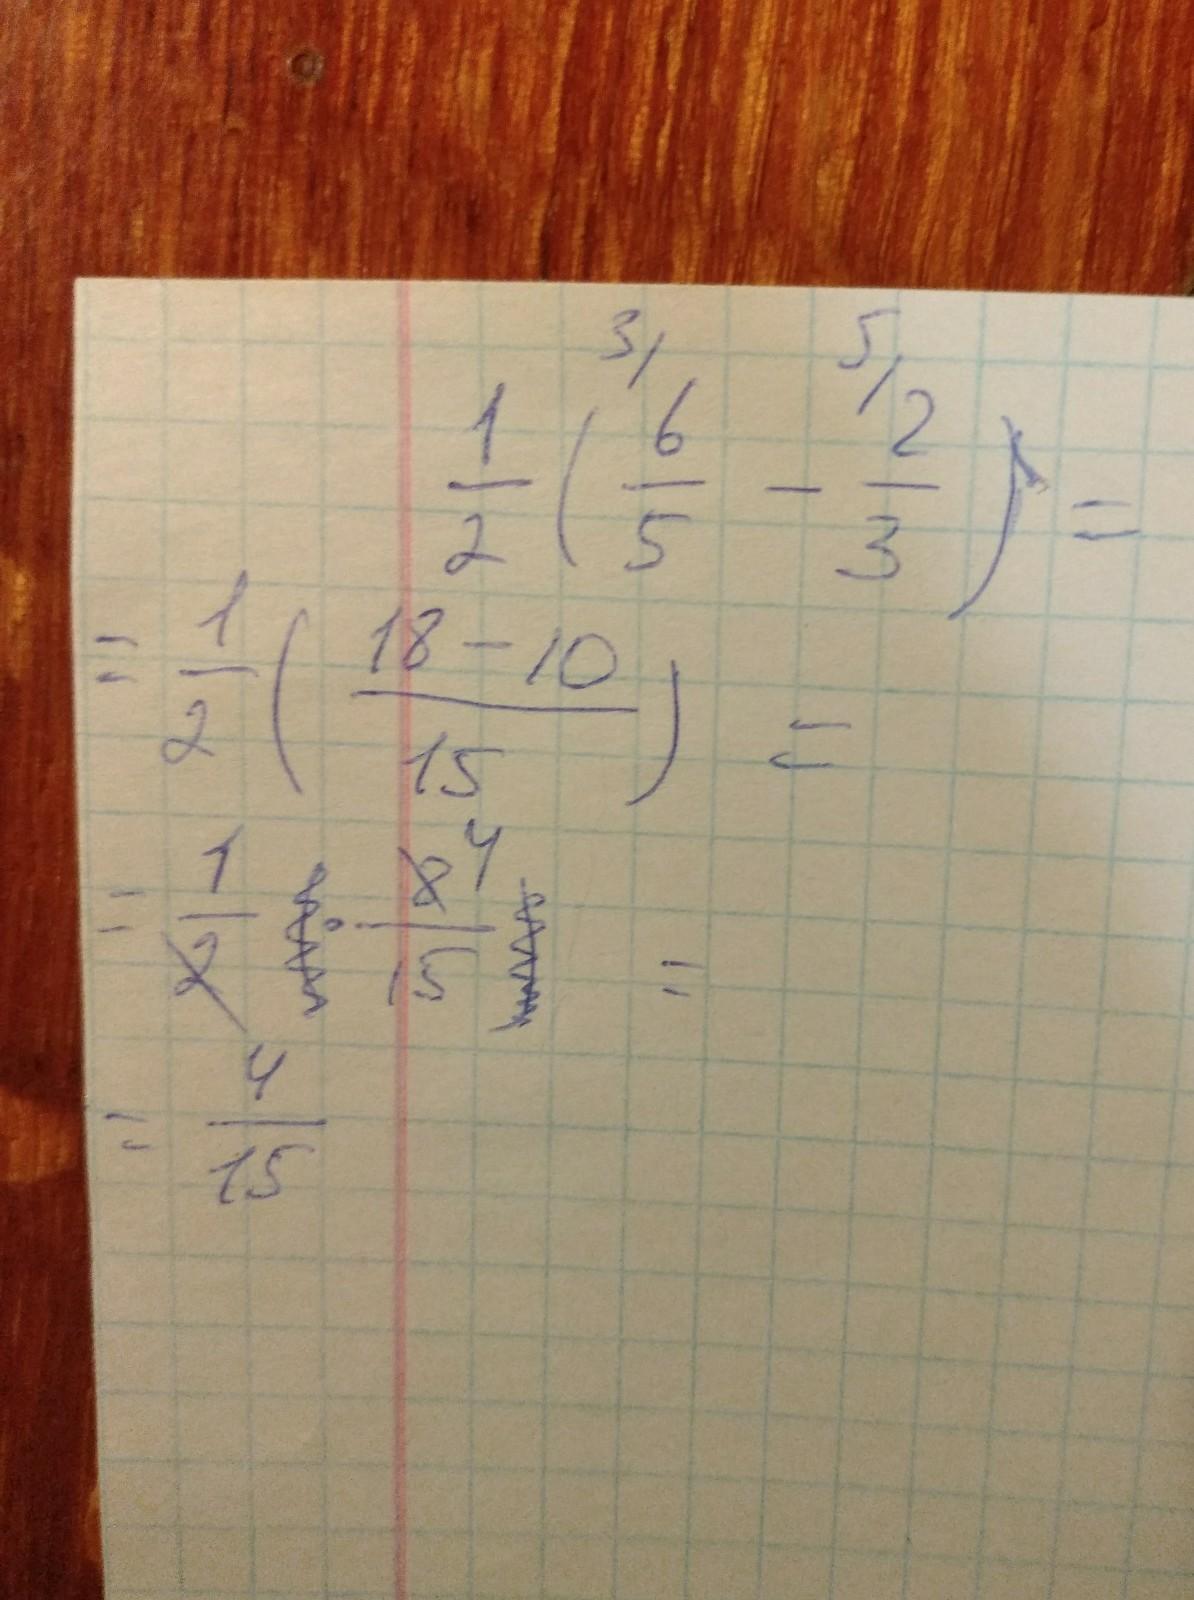 1/2 ( 3/ 6/5 - 5/ 2/3 ) =
= 1/2 ( (18 - 10)/15 ) =
= 1/2 · 8/15 4 =
= 4/15